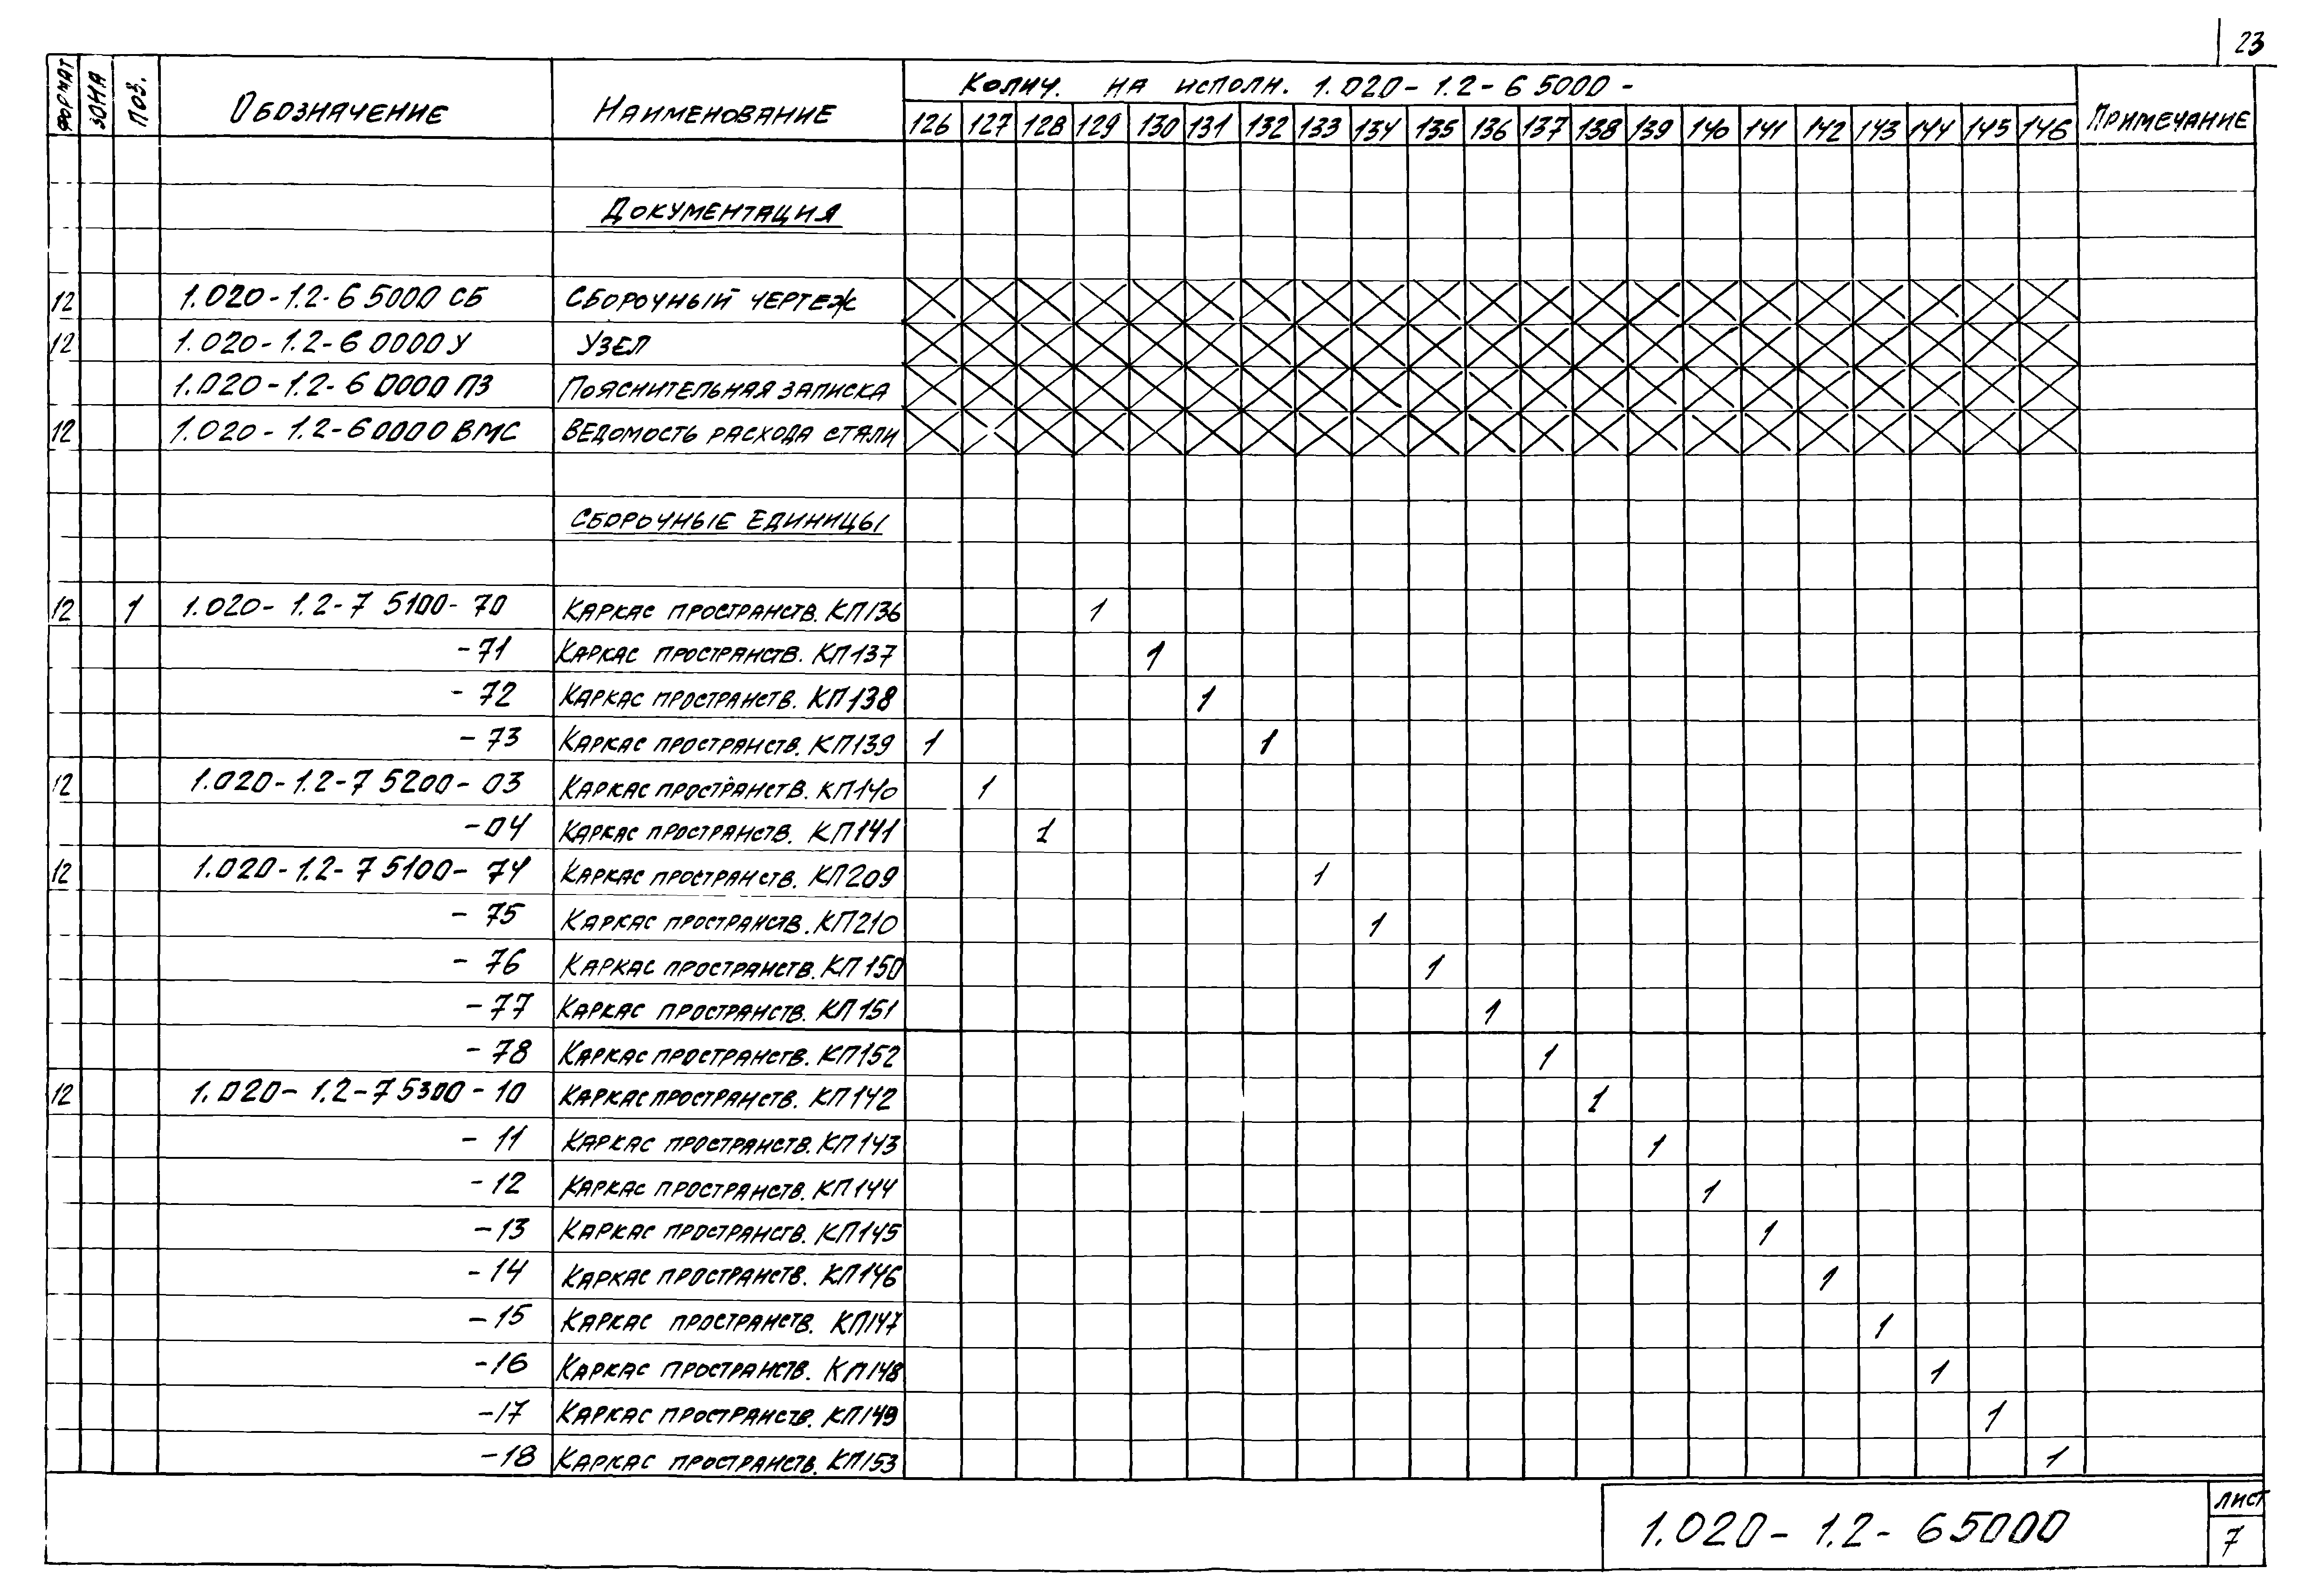 23
ФОРМАТ ЗОНА ПОЗ. ОБОЗНАЧЕНИЕ НАИМЕНОВАНИЕ КОЛИЧ. НА ИСПОЛН. 1.020-1.2-6 5000- ПРИМЕЧАНИЕ
126 127 128 129 130 131 132 133 134 135 136 137 138 139 140 141 142 143 144 145 146
ДОКУМЕНТАЦИЯ
12 1.020-1.2-6 5000 СБ СБОРОЧНЫЙ ЧЕРТЕЖ
12 1.020-1.2-6 0000 У УЗЕЛ
1.020-1.2-6 0000 ПЗ ПОЯСНИТЕЛЬНАЯ ЗАПИСКА
12 1.020-1.2-6 0000 ВМС ВЕДОМОСТЬ РАСХОДА СТАЛИ
СБОРОЧНЫЕ ЕДИНИЦЫ
12 1 1.020-1.2-7 5100-70 КАРКАС ПРОСТРАНСТВ. КП136 1
-71 КАРКАС ПРОСТРАНСТВ. КП137 1
-72 КАРКАС ПРОСТРАНСТВ. КП138 1
-73 КАРКАС ПРОСТРАНСТВ. КП139 1 1
12 1.020-1.2-7 5200-03 КАРКАС ПРОСТРАНСТВ. КП140 1
-04 КАРКАС ПРОСТРАНСТВ. КП141 1
12 1.020-1.2-7 5100-74 КАРКАС ПРОСТРАНСТВ. КП209 1
-75 КАРКАС ПРОСТРАНСТВ. КП210 1
-76 КАРКАС ПРОСТРАНСТВ. КП150 1
-77 КАРКАС ПРОСТРАНСТВ. КП151 1
-78 КАРКАС ПРОСТРАНСТВ. КП152 1
12 1.020-1.2-7 5300-10 КАРКАС ПРОСТРАНСТВ. КП142 1
-11 КАРКАС ПРОСТРАНСТВ. КП143 1
-12 КАРКАС ПРОСТРАНСТВ. КП144 1
-13 КАРКАС ПРОСТРАНСТВ. КП145 1
-14 КАРКАС ПРОСТРАНСТВ. КП146 1
-15 КАРКАС ПРОСТРАНСТВ. КП147 1
-16 КАРКАС ПРОСТРАНСТВ. КП148 1
-17 КАРКАС ПРОСТРАНСТВ. КП149 1
-18 КАРКАС ПРОСТРАНСТВ. КП153 1
1.020-1.2-6 5000
ЛИСТ
7